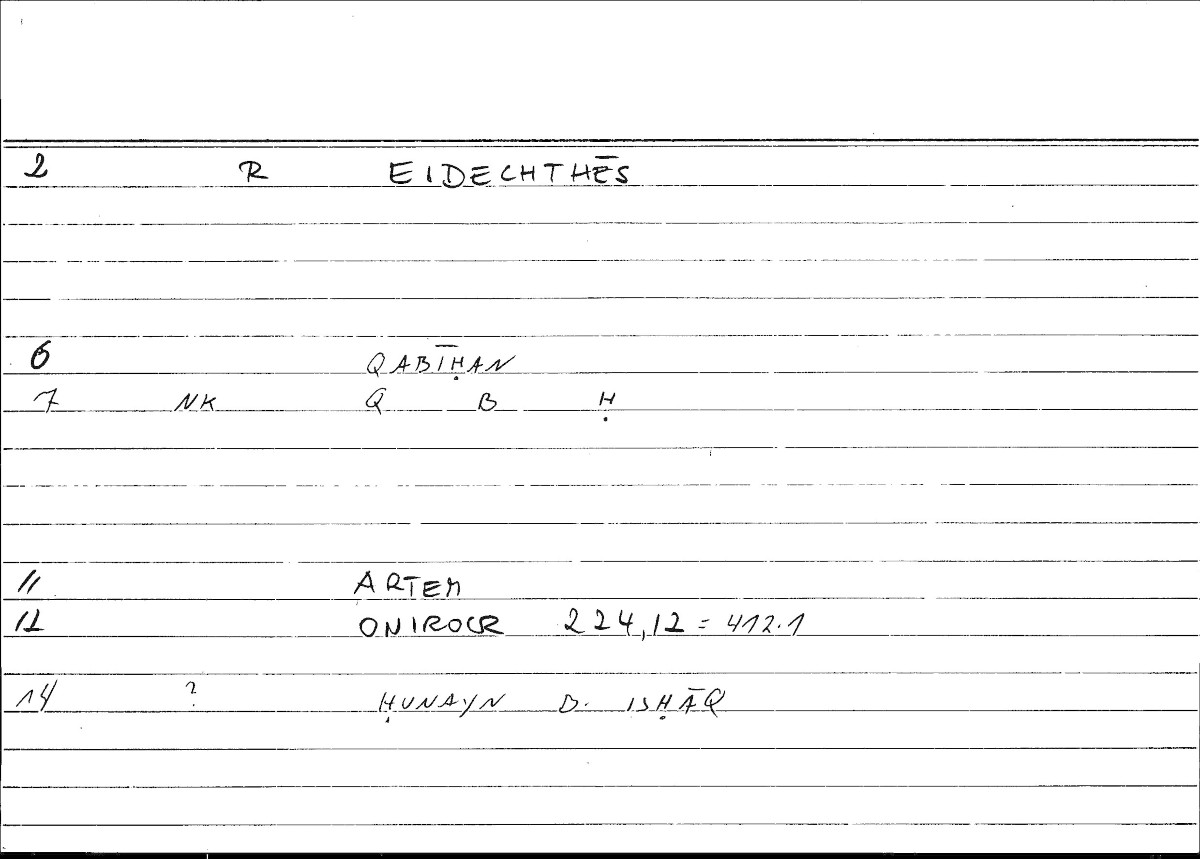 2 R EIDECHTHĒS
6 QABĪḤAN
7 NK Q B Ḥ
11 ARTEM
12 ONIROCR 224,12 = 412.1
14 ? ḤUNAYN B. ISḤĀQ